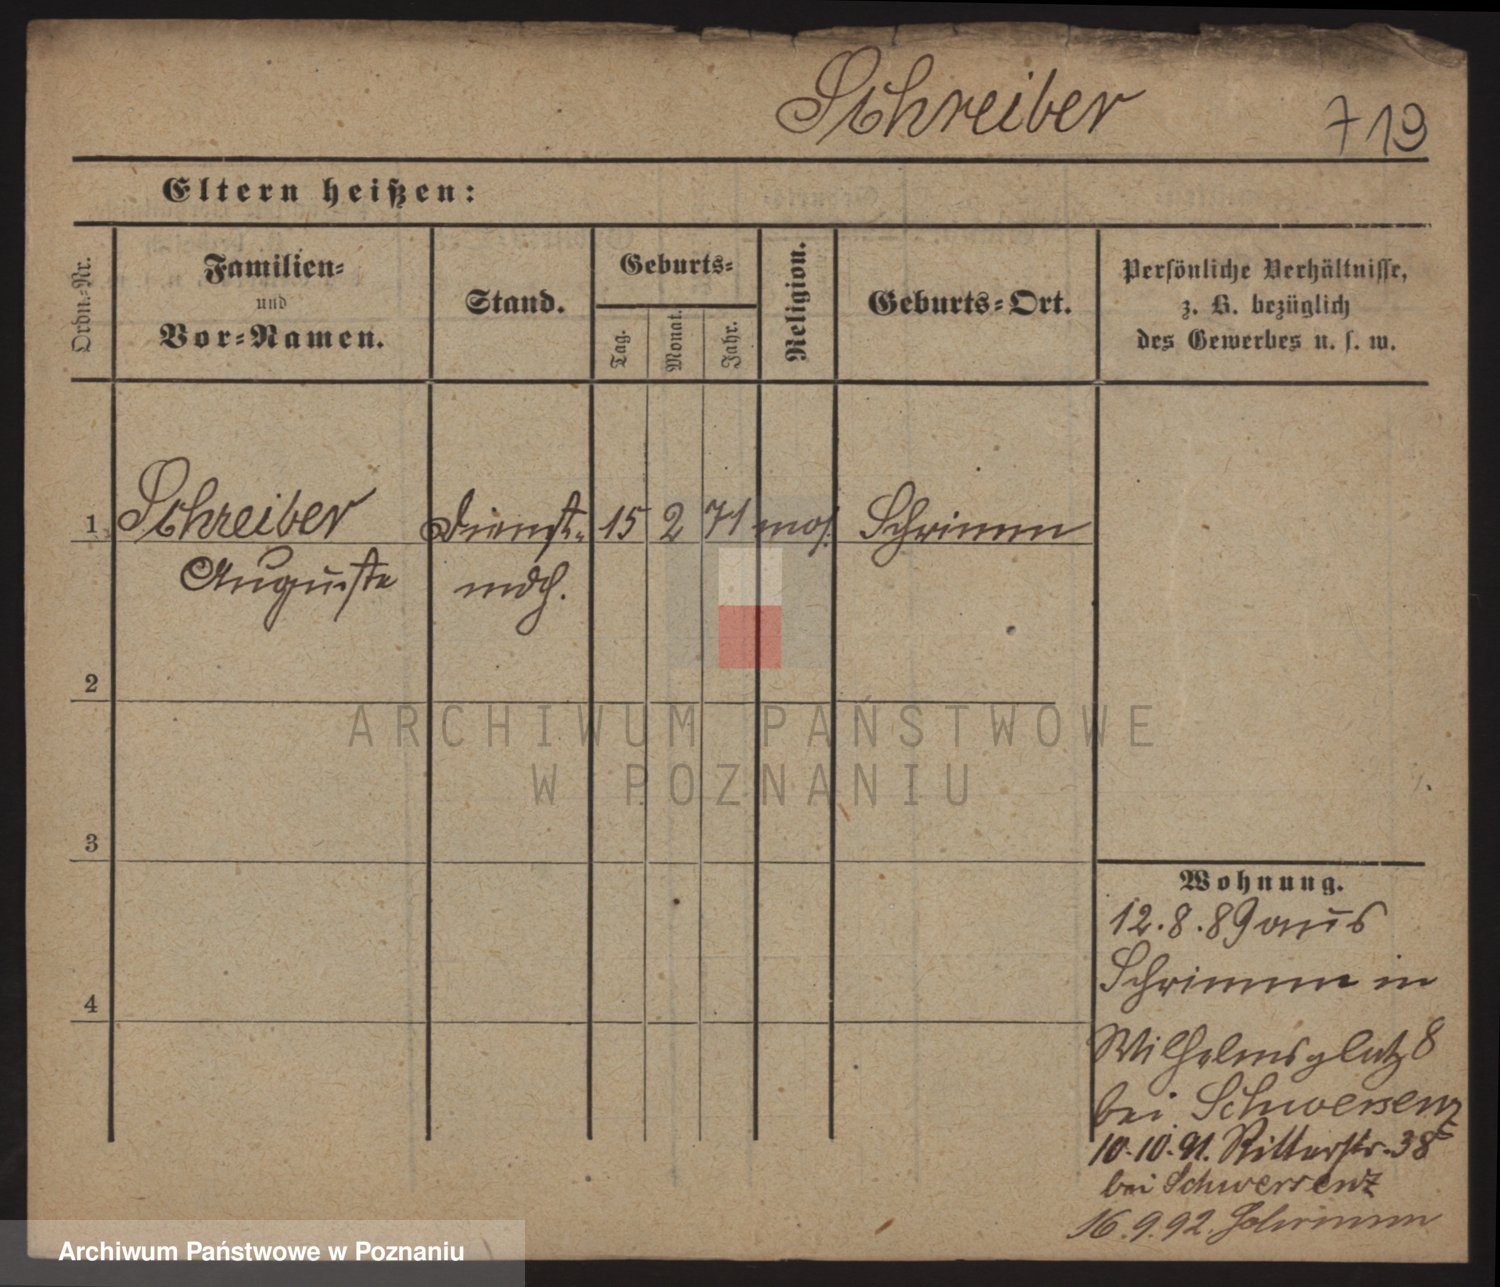 Schreiber
719
Eltern heißen:
Ordn.-Nr.
Familien-
und
Vor-Namen.
Stand.
Geburts-
Tag.
Monat.
Jahr.
Religion.
Geburts-Ort.
Persönliche Verhältnisse,
z. B. bezüglich
des Gewerbes u. s. w.
1 Schreiber Dienst- 15 2 71 mos. Schrimm
Auguste mdch.
2
3
4
Wohnung.
12.8.89 aus
Schrimm in
Wilhelmsplatz 8
bei Schwersenz
10.10.91. Ritterstr. 38
bei Schwersenz
16.9.92.
ARCHIWUM PAŃSTWOWE
W POZNANIU
Archiwum Państwowe w Poznaniu